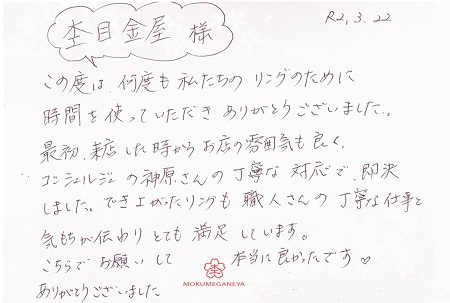 杢目金屋 様
R2.3.22
この度は、何度も私たちのリングのために
時間を使っていただきありがとうございました。
最初、来店した時からお店の雰囲気も良く、
コンシェルジュの神原さんの丁寧な対応で、即決
しました。できよがったリングも職人さんの丁寧な仕事と
気もちが伝わりとても満足しています。
こちらでお願いして 本当に良かったです♡
ありがとうございました
MOKUMEGANEYA